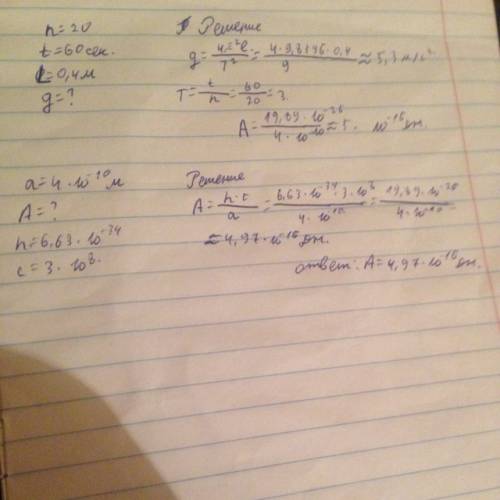 n=20
t=60сек.
l=0,4м
g=?
Решение
g = 4π²l / T² = 4·9,8596·0,4 / 9 ≈ 5,3 м/с²
T = t / n = 60 / 20 = 3
A = 19,89·10⁻²⁶ / 4·10⁻¹⁰ ≈ 5. 10⁻¹⁶ Дж.
a=4·10⁻¹⁰м
A=?
h=6,63·10⁻³⁴
c=3·10⁸.
Решение
A = h·c / a = 6,63·10⁻³⁴·3·10⁸ / 4·10⁻¹⁰ = 19,89·10⁻²⁶ / 4·10⁻¹⁰
≈ 4,97·10⁻¹⁶ Дж.
ответ: A=4,97·10⁻¹⁶Дж.